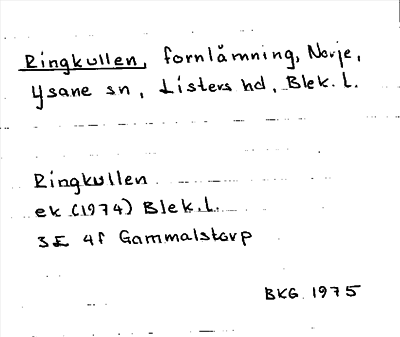 Ringkullen, fornlämning, Norje,
Ysane sn, Listers hd, Blek. L.
Ringkullen
ek (1974) Blek.L.
3E 4f Gammalstorp
BKG 1975